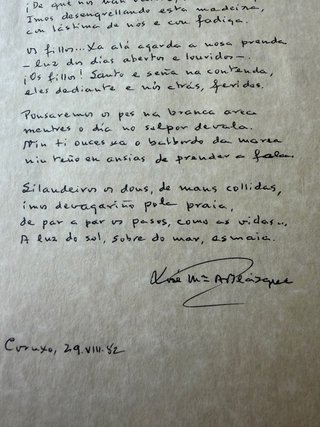 ¡De que nos han
Imos desengrellando esta madeixa,
con lástima de nós e con fadiga.
os fillos...Xa alá agarda a nosa prenda
—luz dos dias abertos e louridos—.
¡Os fillos! Santo e seña na contenda,
eles dediante e nós atrás, feridos.
Pousaremos os pes na branca area
mentres o día no solpor devala.
Nin ti ouces xa o balbordo da marea
nin teño eu ansias de prender a fala.
Silandeiros os dous, de mans collidas,
imos devagariño pola praia,
de par a par os pasos, como as vidas...
A luz do sol, sobre do mar, esmaia.
José Mª A. Blázquez
Coruxo, 29.VIII.82